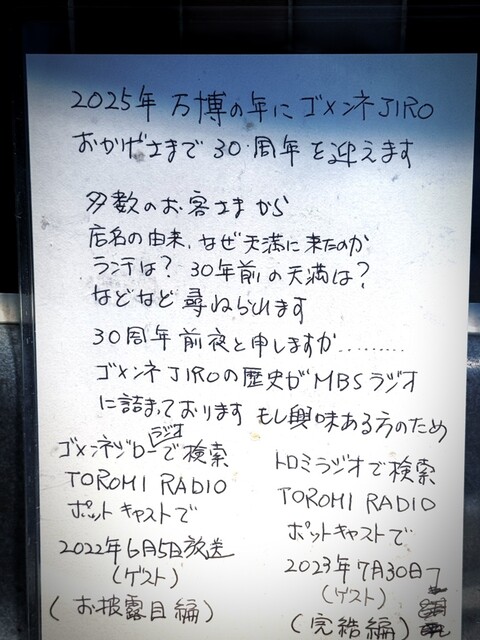 2025年 万博の年に ゴメンネJIRO
おかげさまで 30周年を迎えます
多数のお客さまから
店名の由来、なぜ天満に来たのか
ランチは? 30年前の天満は?
などなど 尋ねられます
30周年前夜と申しますか.........
ゴメンネJIROの歴史がMBSラジオ
に詰まっております もし興味ある方のため
ゴメンネジローラジオで検索
TOROMI RADIO
ポットキャストで
2022年6月5日放送
(ゲスト)
(お披露目編)
トロミラジオで検索
TOROMI RADIO
ポットキャストで
2023年7月30日
(ゲスト)
(完結編)